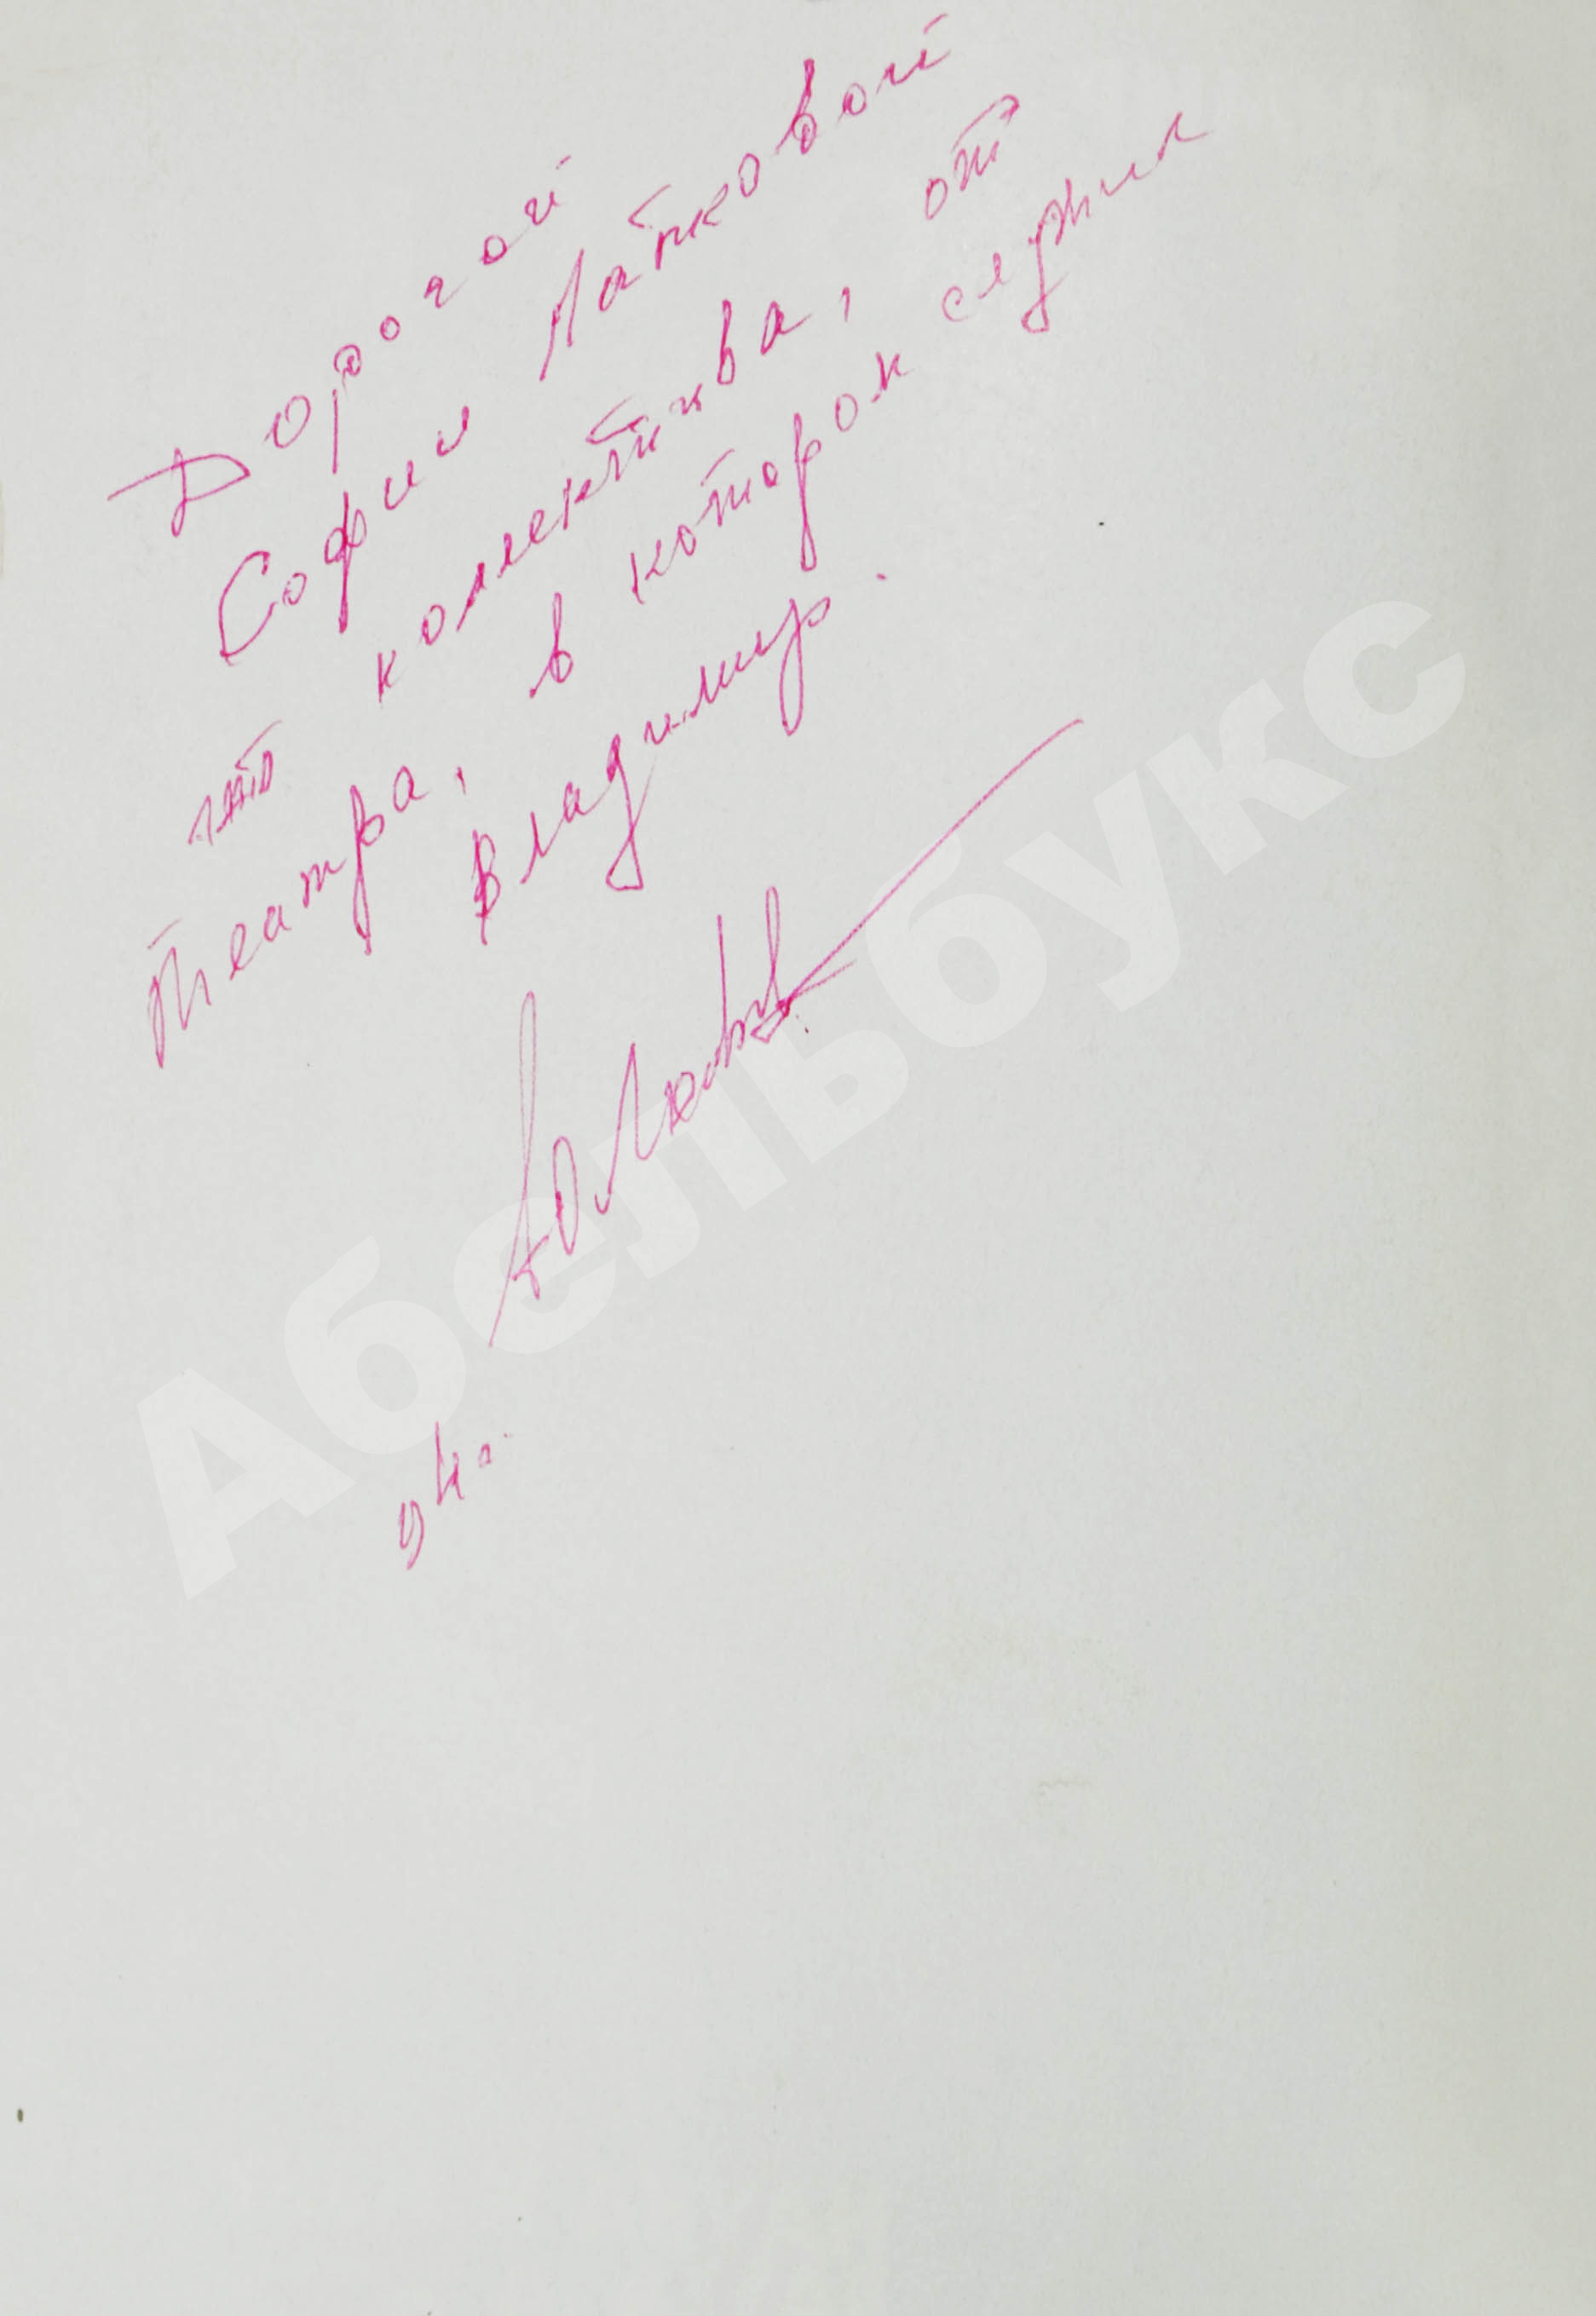 Дорогой
Софии Латковой
от коллектива, от
театра, в котором служил
Владимир.
Абельбукс